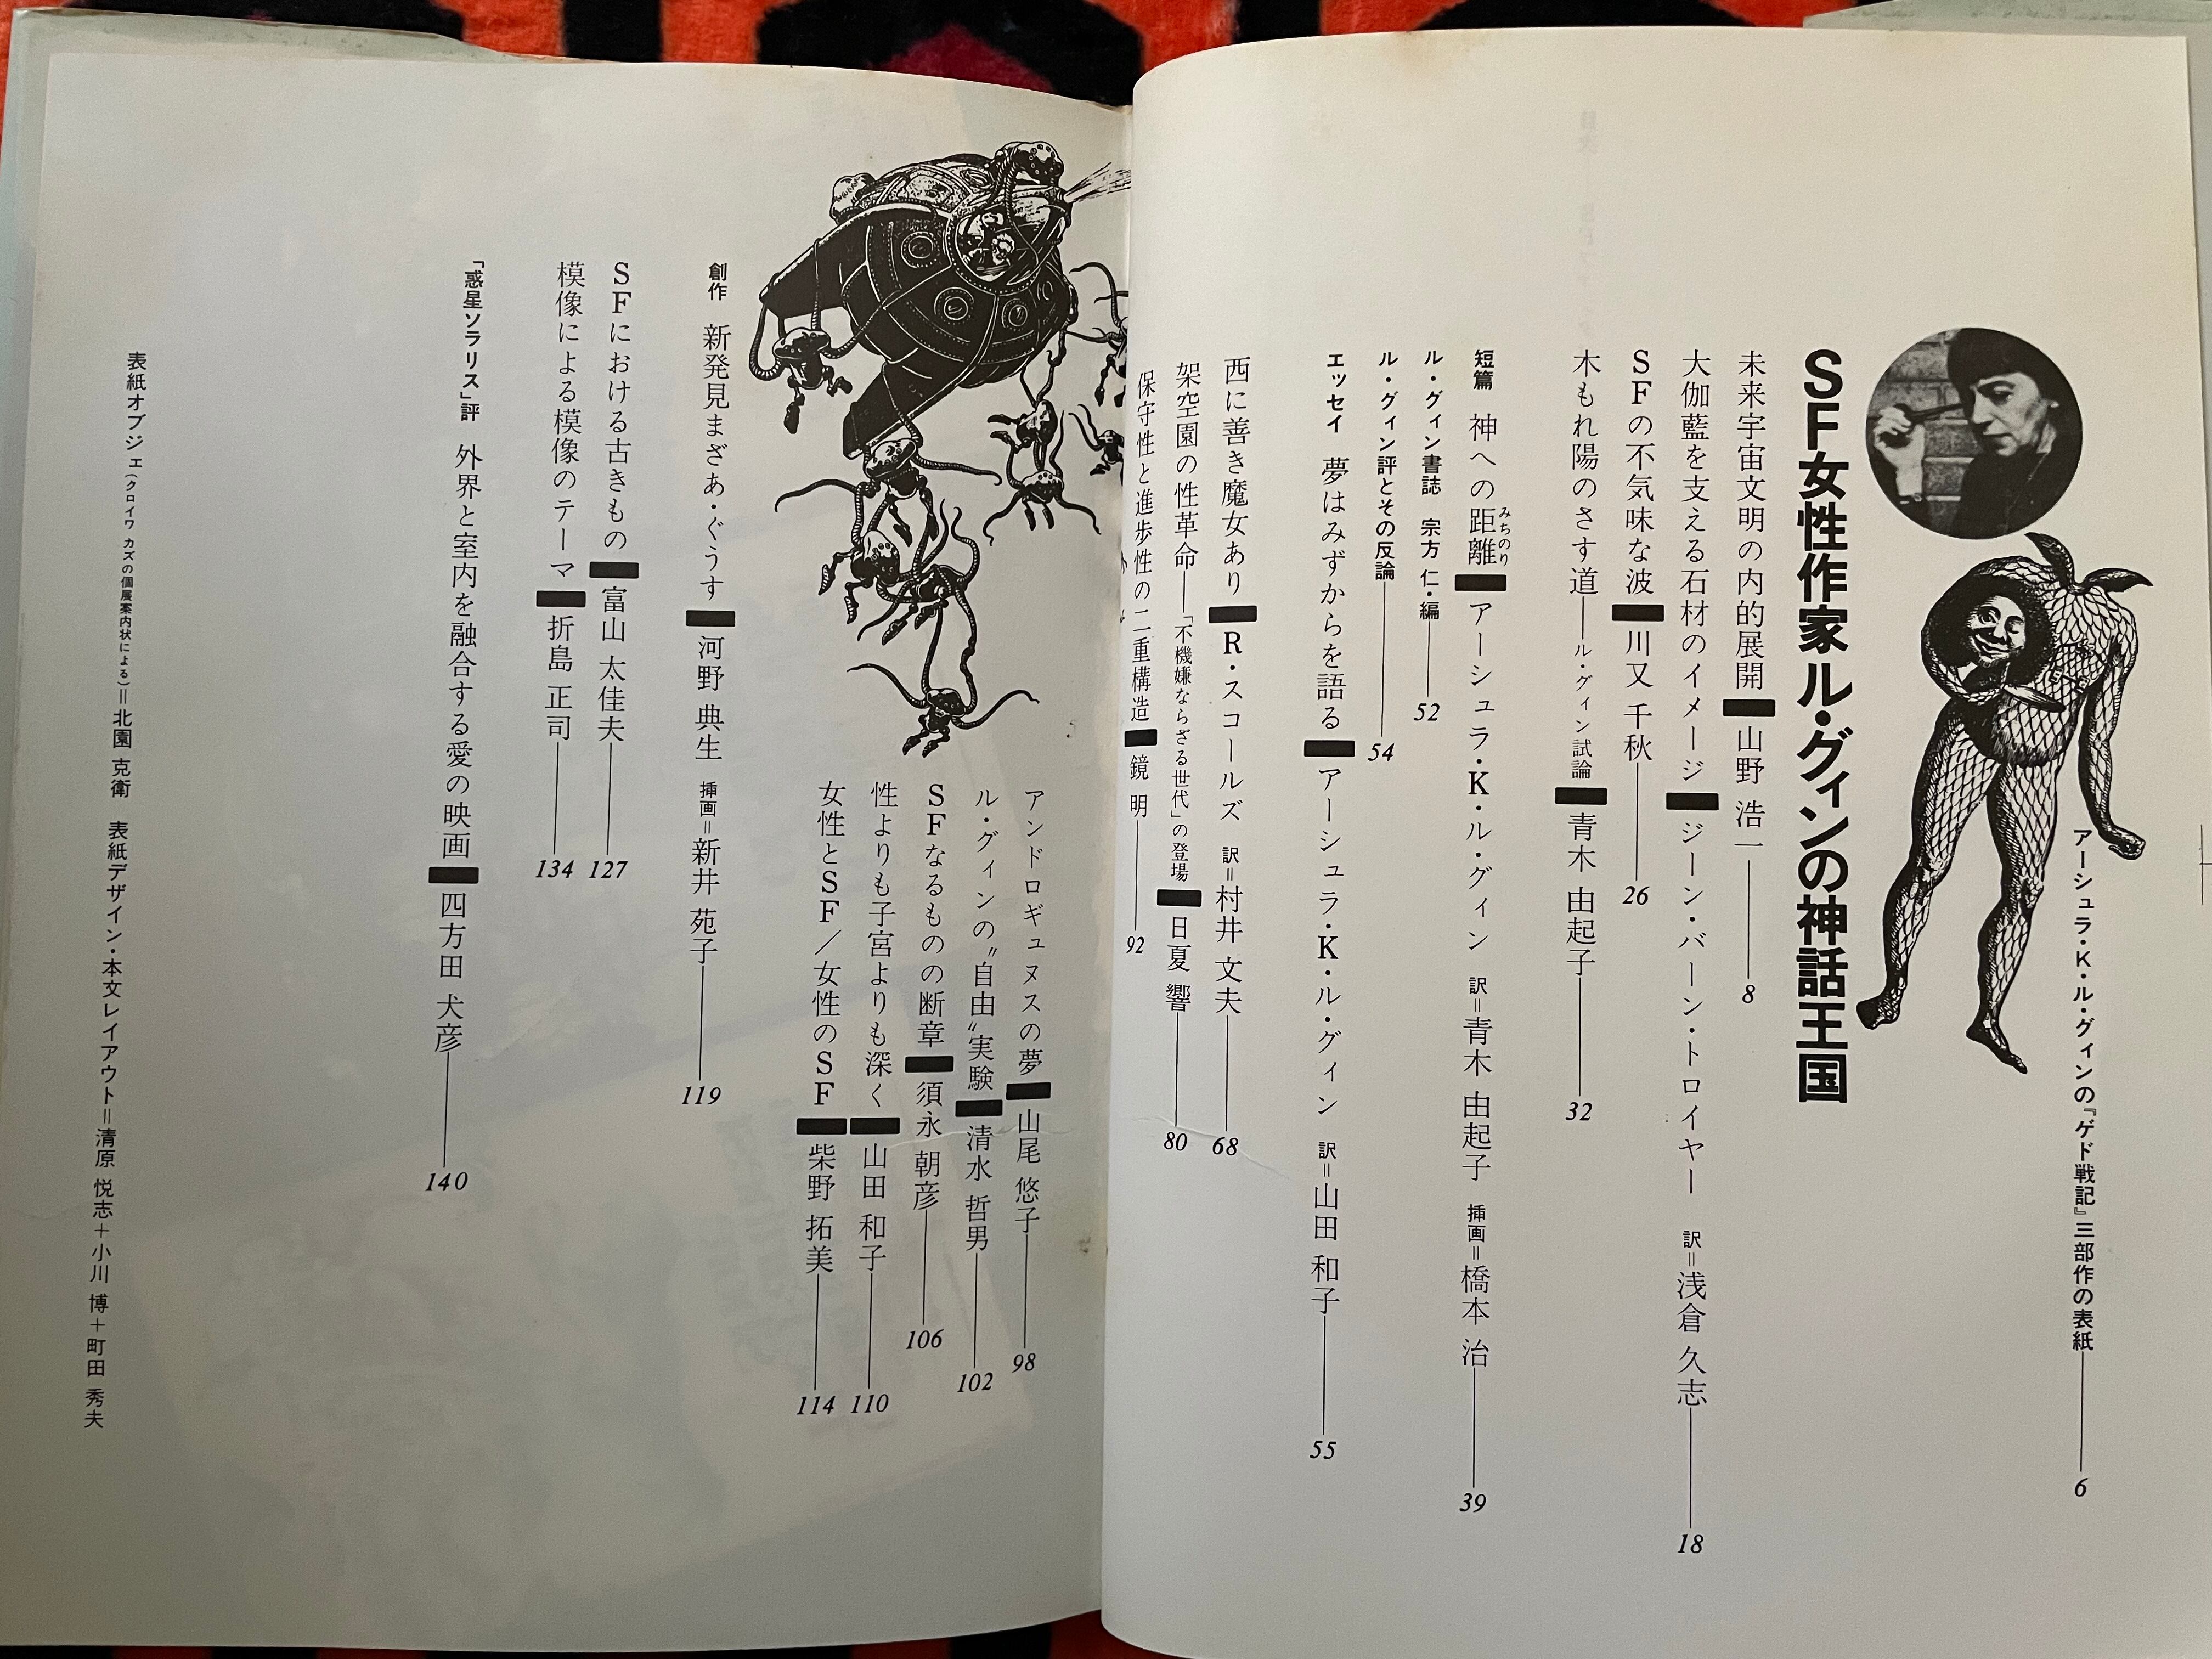 アーシュラ・K・ル・グィンの『ゲド戦記』三部作の表紙 6
SF女性作家ル・グィンの神話王国
未来宇宙文明の内的展開 山野 浩一 8
大伽藍を支える石材のイメージ ジーン・バーン・トロイヤー 訳=浅倉 久志 18
SFの不気味な波 川又 千秋 26
木もれ陽のさす道――ル・グィン試論 青木 由起子 32
短篇 神への距離 アーシュラ・K・ル・グィン 訳=青木 由起子 挿画=橋本 治 39
みちのり
ル・グィン書誌 宗方 仁・編 52
ル・グィン評とその反論 54
エッセイ 夢はみずからを語る アーシュラ・K・ル・グィン 訳=山田 和子 55
西に善き魔女あり R・スコールズ 訳=村井 文夫 68
架空園の性革命――「不機嫌ならざる世代」の登場 日夏 響 80
保守性と進歩性の二重構造 鏡 明 92
アンドロギュヌスの夢 山尾 悠子 98
ル・グィンの〝自由〟実験 清水 哲男 102
SFなるものの断章 須永 朝彦 106
性よりも子宮よりも深く 山田 和子 110
女性とSF/女性のSF 柴野 拓美 114
創作 新発見まざあ・ぐうす 河野 典生 挿画=新井 苑子 119
SFにおける古きもの 富山 太佳夫 127
模像による模像のテーマ 折島 正司 134
「惑星ソラリス」評 外界と室内を融合する愛の映画 四方田 犬彦 140
表紙オブジェ(クロイワ カズの個展案内状による)=北園 克衛 表紙デザイン・本文レイアウト=清原 悦志+小川 博+町田 秀夫